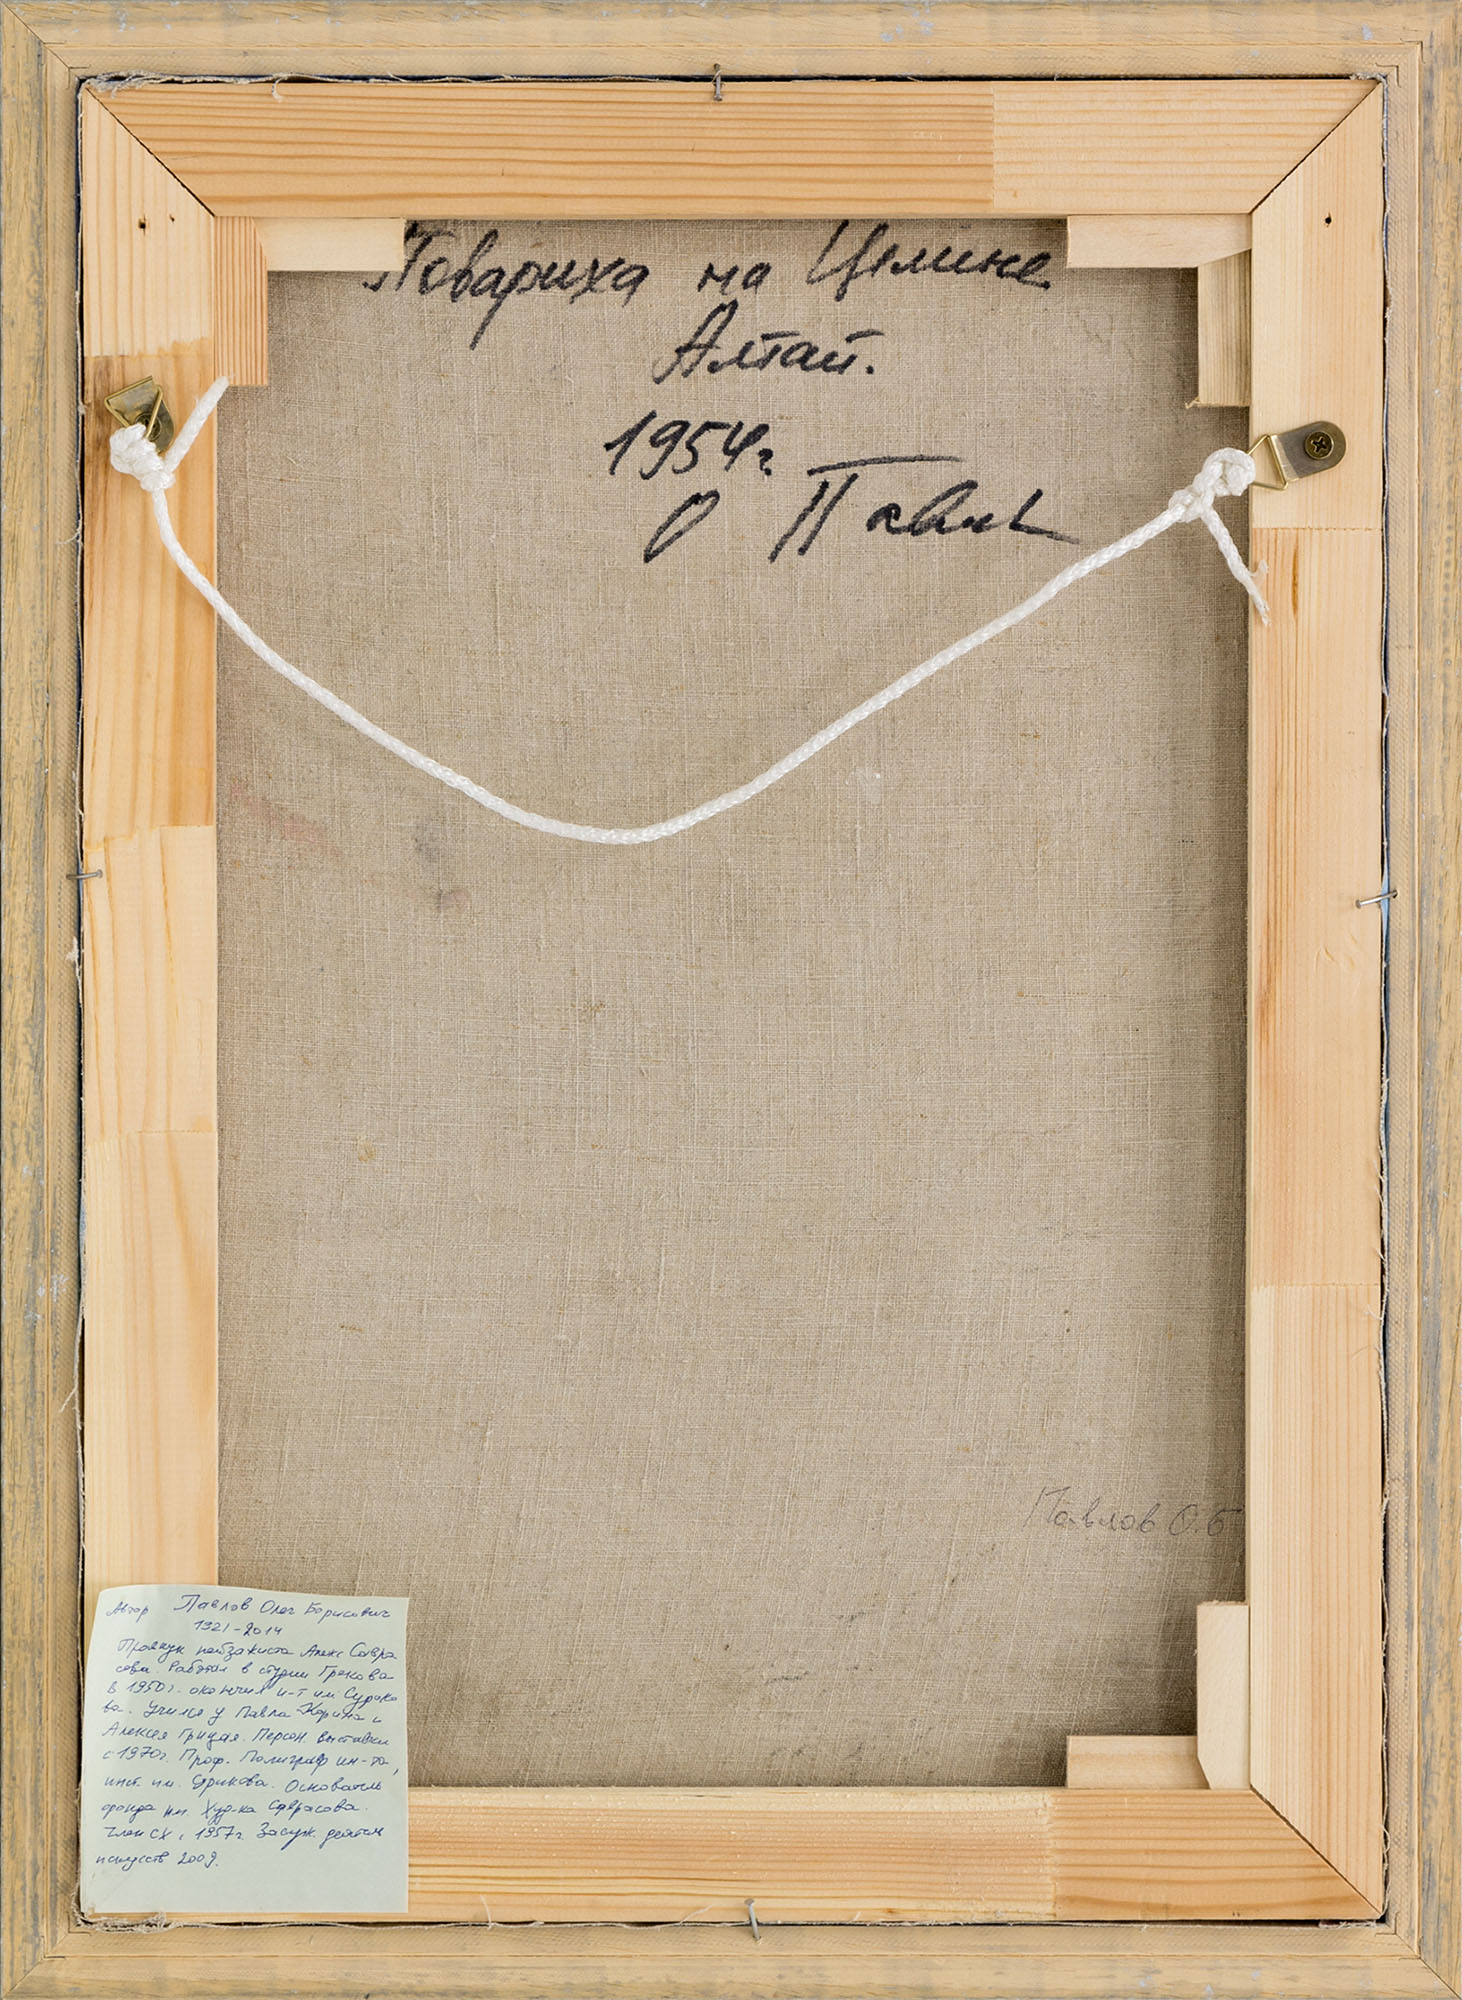 Повариха на Целине
Алтай.
1954г.
О Павл
Павлов О.Б
Автор Павлов Олег Борисович
1921-2014
Правнук пейзажиста Алекс Савра
сова. Работал в студии Грекова
в 1950г. окончил и-т им. Сурико
ва. Учился у Павла Корина и
Алексея Грицая. Персон. выставки
с 1970г. Проф. Полиграф ин-та,
инст. им. Сурикова. Основатель
фонда им. Худ-ка Саврасова.
Член СХ с 1957г. Заслуж. деятель
искусств 2009.